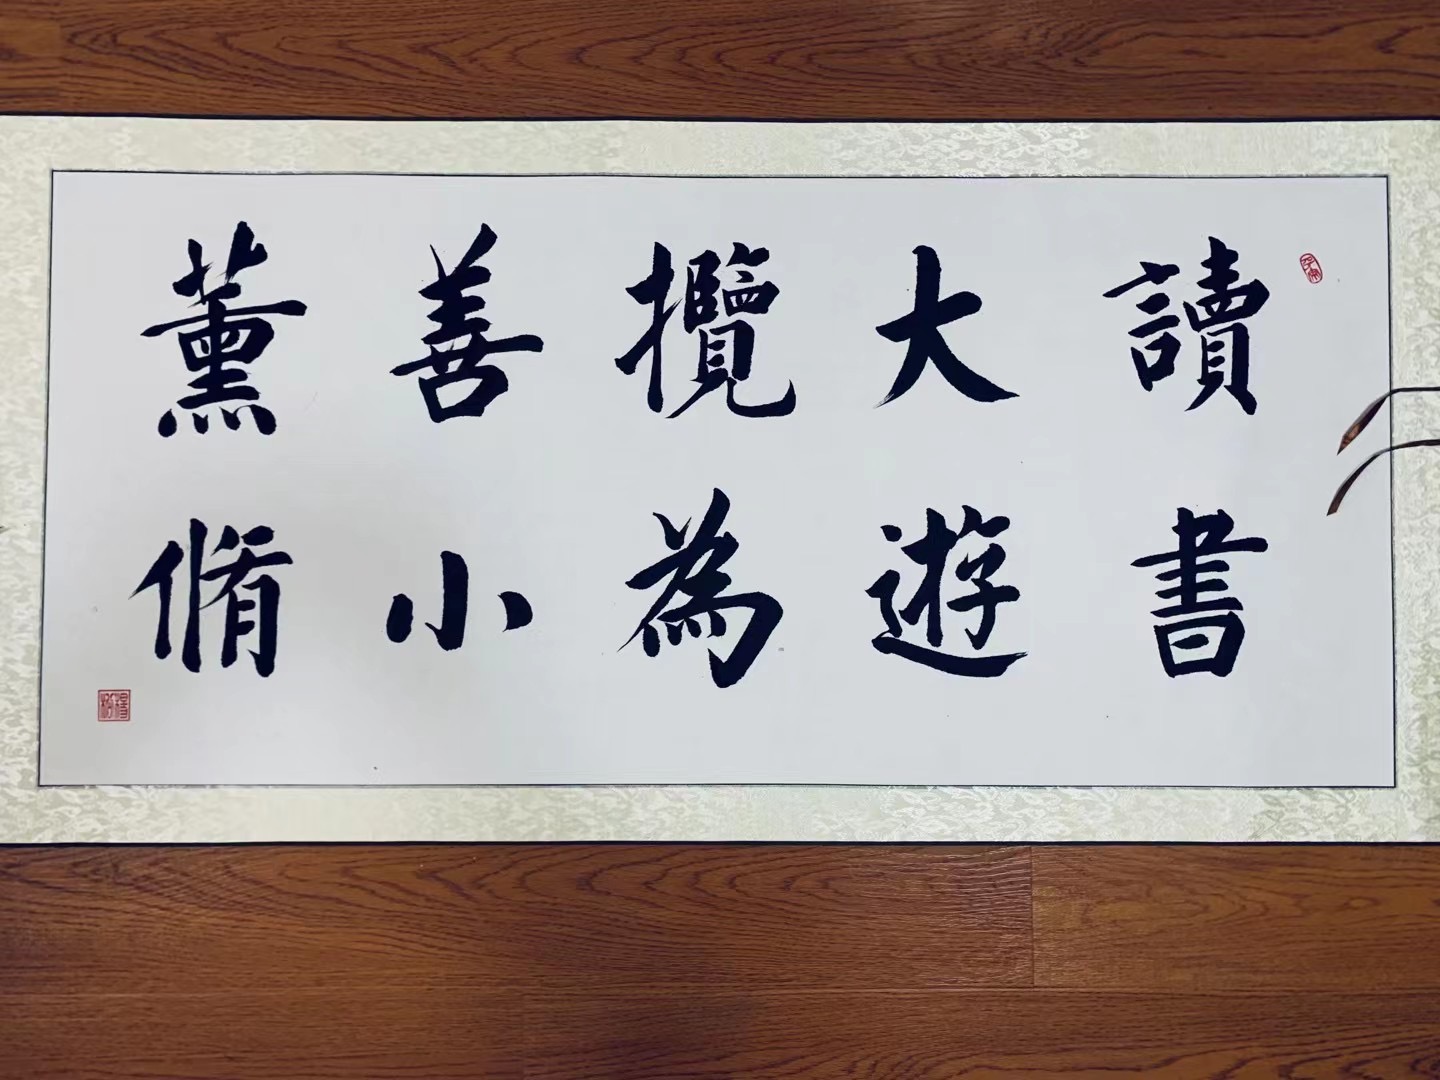 讀書
大遊
攬為
善小
薰脩